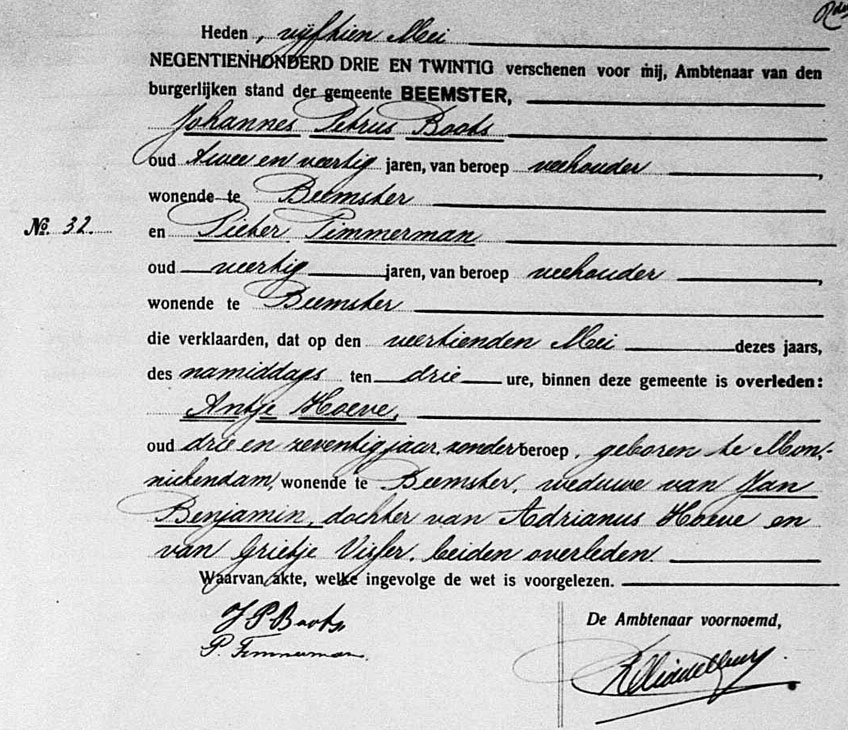 Heden, vijftien Mei
NEGENTIENHONDERD DRIE EN TWINTIG verschenen voor mij, Ambtenaar van den
burgerlijken stand der gemeente BEEMSTER,
Johannes Petrus Boots
oud twee en veertig jaren, van beroep veehouder,
wonende te Beemster
No. 32. en Pieter Timmerman
oud veertig jaren, van beroep veehouder,
wonende te Beemster
die verklaarden, dat op den veertienden Mei dezes jaars,
des namiddags ten drie ure, binnen deze gemeente is overleden:
Antje Hoeve,
oud drie en zeventig jaar, zonder beroep, geboren te Mon-
nickendam, wonende te Beemster, weduwe van Jan
Benjamin, dochter van Adrianus Hoeve en
van Grietje Visser, beiden overleden.
Waarvan akte, welke ingevolge de wet is voorgelezen.
J P Boots
De Ambtenaar voornoemd,
P. Timmerman.